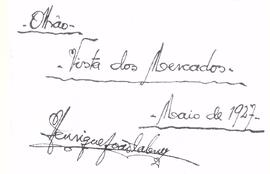 -Olhão-
-Vista dos Mercados-
-Maio de 1927-
Henrique